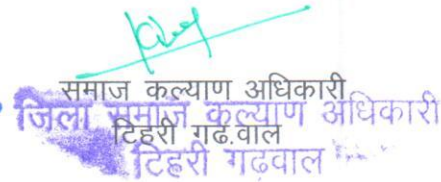 समाज कल्याण अधिकारी
जिला समाज कल्याण अधिकारी
टिहरी गढ.वाल
टिहरी गढ़वाल